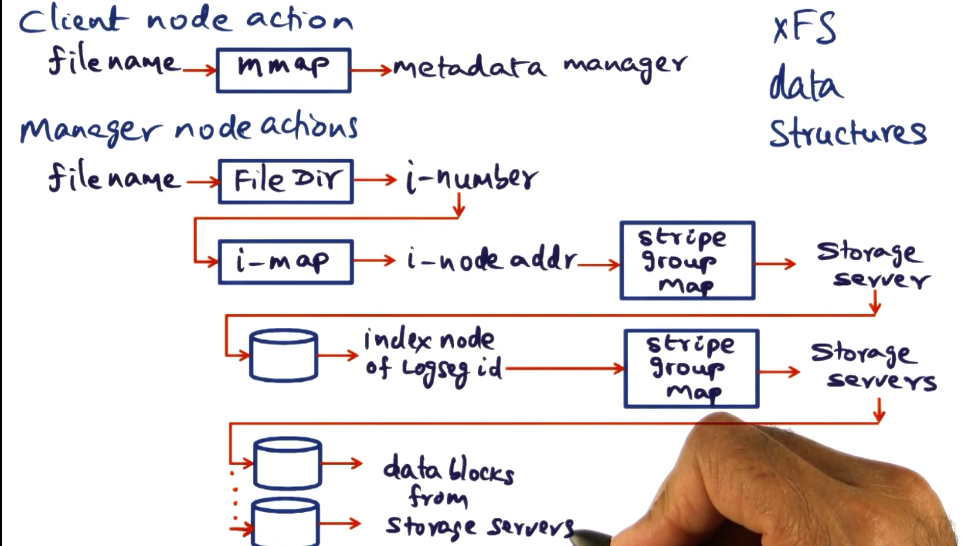 Client node action
filename mmap metadata manager
Manager node actions
filename File Dir i-number
i-map i-node addr
stripe
group
map
Storage
server
index node
of Logseg id
stripe
group
map
Storage
servers
data blocks
from
storage servers
xFS
data
Structures